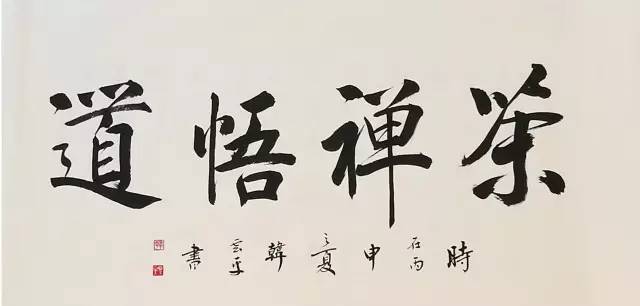 茶禅悟道
時在丙申之夏韓雲平書